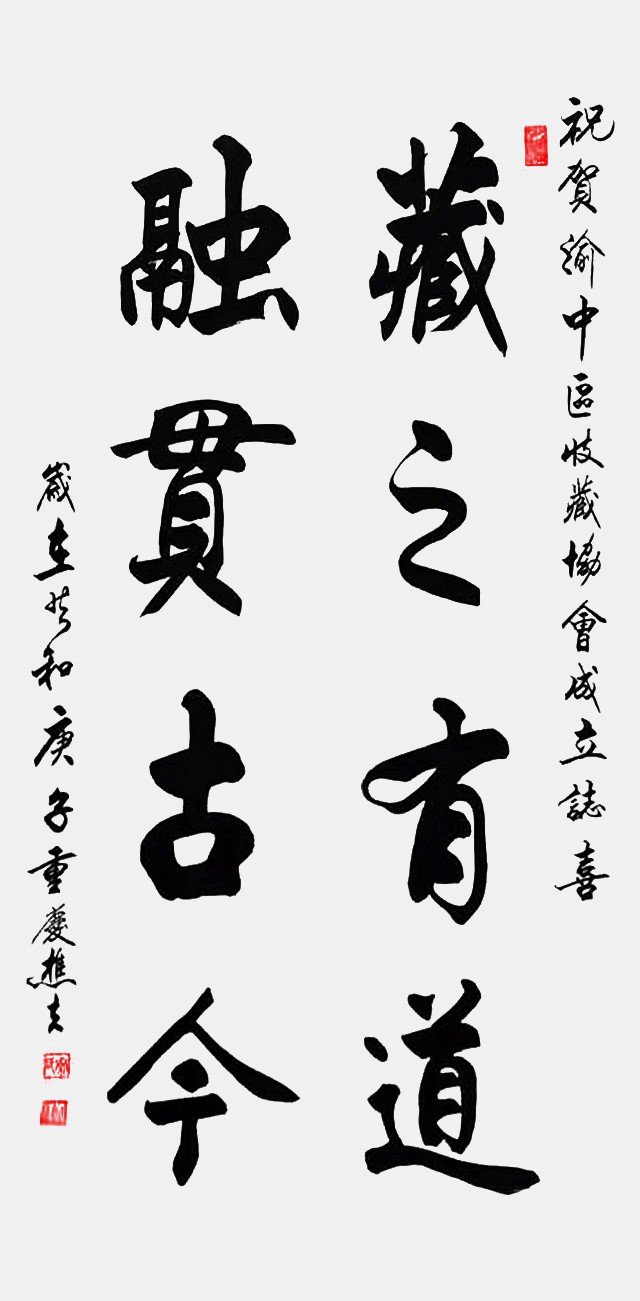 祝賀渝中區收藏協會成立誌喜
藏之有道
融貫古今
歲在共和庚子重慶樵夫